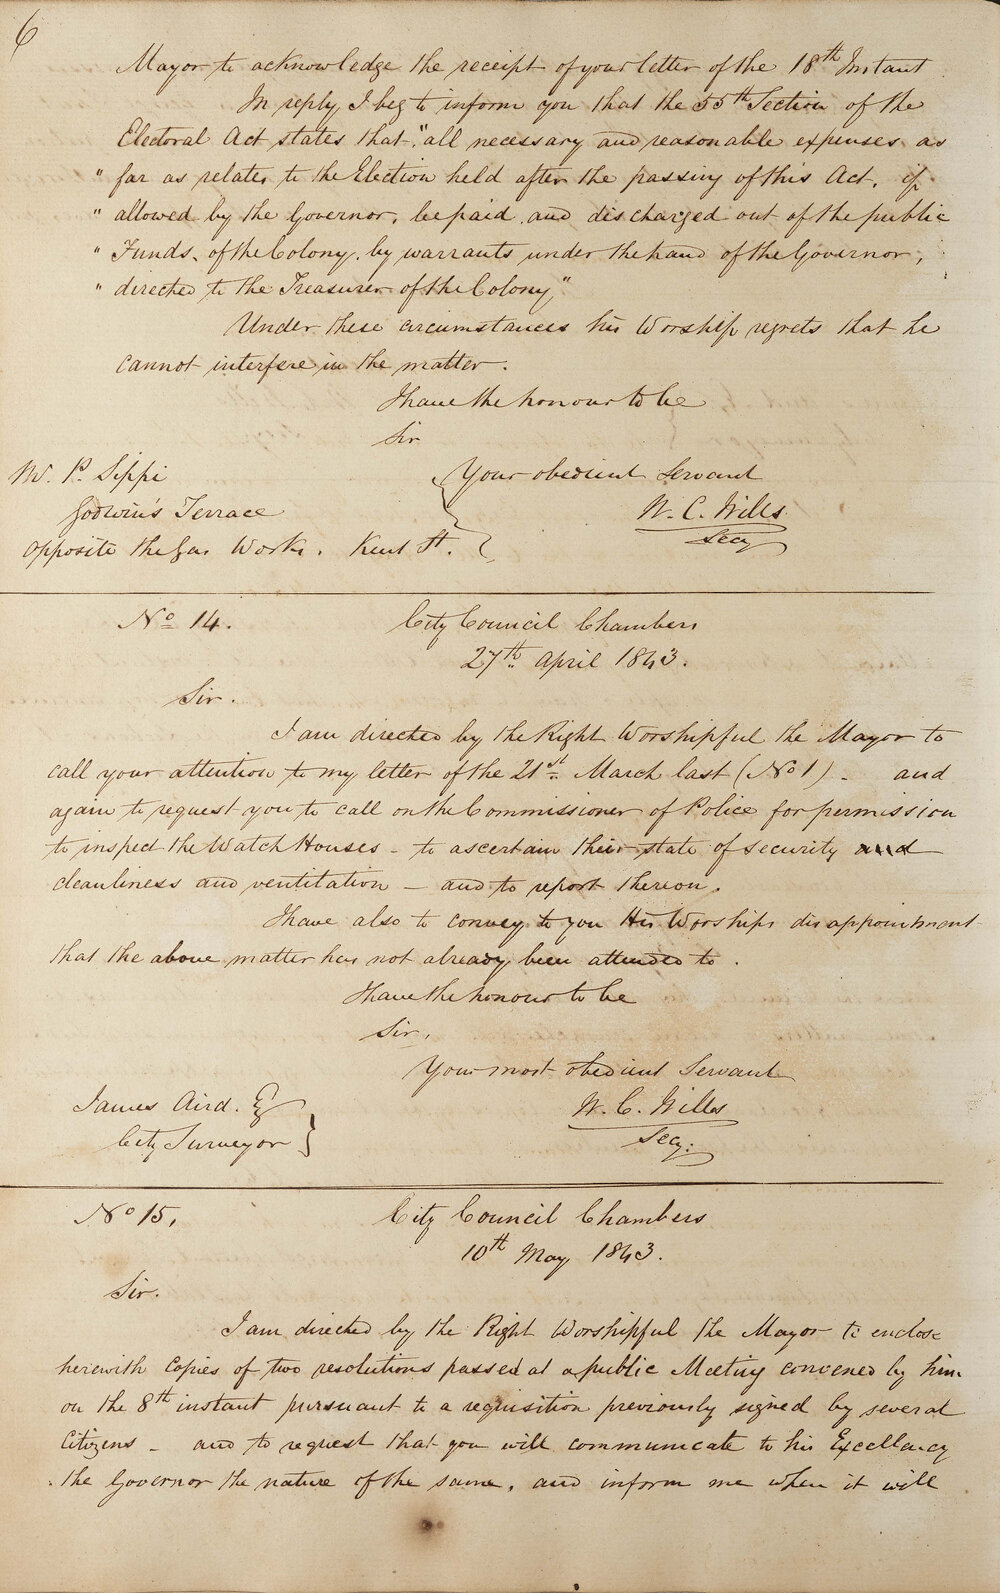 6
Mayor to acknowledge the receipt of your letter of the 18th Instant
In reply, I beg to inform you that the 55th Section of the
Electoral Act states that "all necessary and reasonable expenses as
" far as relates to the Election held after the passing of this Act, if
" allowed by the Governor, be paid and discharged out of the public
" Funds, of the Colony, by warrants under the hand of the Governor,
" directed to the Treasurer of the Colony,"
Under these circumstances his Worship regrets that he
cannot interfere in the matter.
I have the honour to be
Sir
Your obedient Servant
W. C. Wills
Secy
Mr. P. Sippi
Godwin's Terrace
opposite the Gas Works. Kent St.
No 14.
City Council Chambers
27th April 1843.
Sir.
I am directed by the Right Worshipful the Mayor to
call your attention to my letter of the 21st March last (No 1) - and
again to request you to call on the Commissioner of Police for permission
to inspect the Watch Houses - to ascertain their state of security and
cleanliness and ventilation - and to report thereon.
I have also to convey to you His Worships disappointment
that the above matter has not already been attended to.
I have the honour to be
Sir,
Your most obedient Servant
W. C. Wills
Secy.
James Aird. Esq
City Surveyor
No 15,
City Council Chambers
10th May 1843.
Sir.
I am directed by the Right Worshipful the Mayor to enclose
herewith Copies of two resolutions passed at a public Meeting convened by him
on the 8th instant pursuant to a requisition previously signed by several
Citizens - and to request that you will communicate to his Excellency
the Governor the nature of the same, and inform me when it will